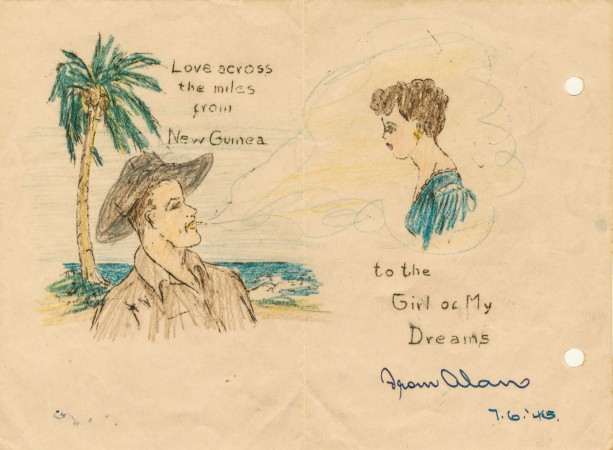 Love across
the miles
from
New Guinea
to the
Girl of My
Dreams
From Alan
7.6.'45.